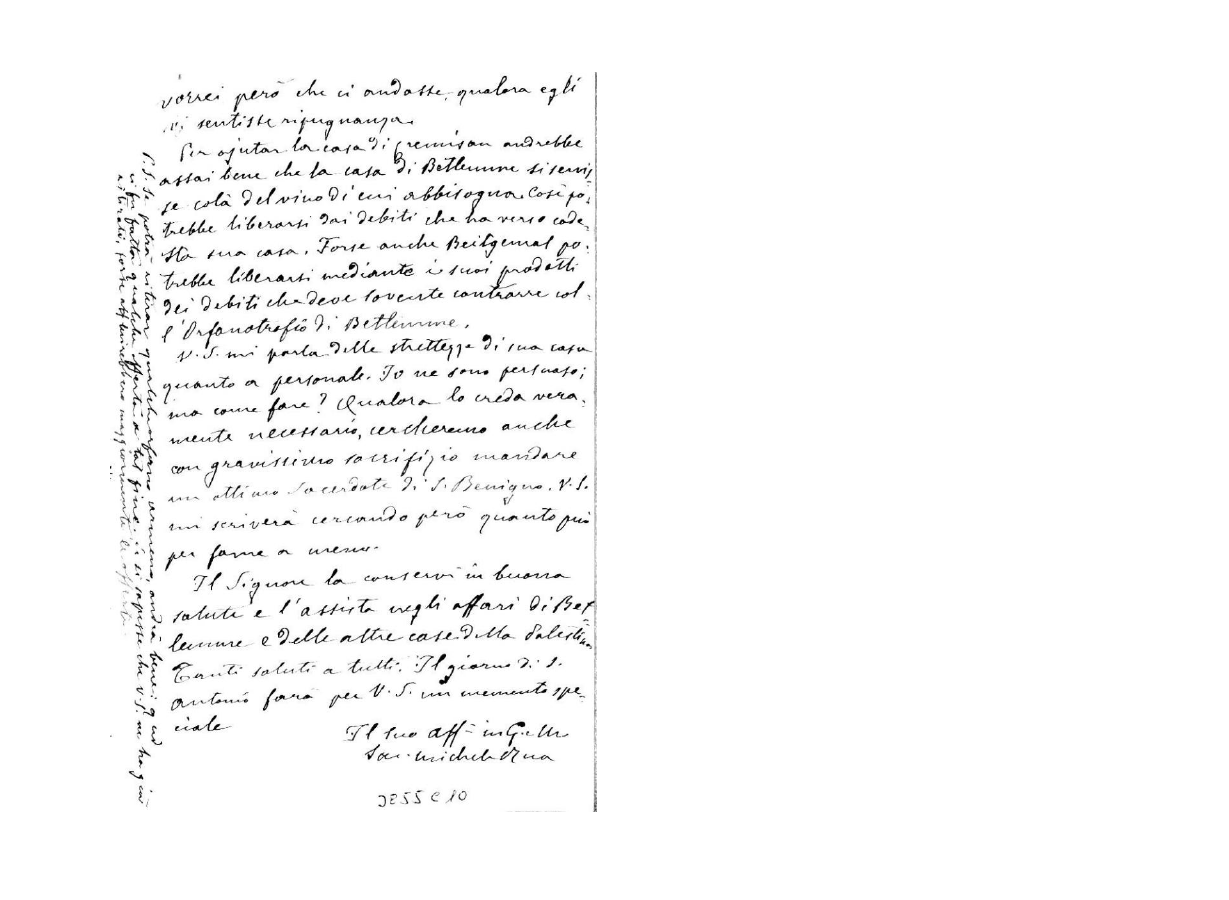 vorrei però che ci andasse, qualora egli
vi sentisse ripugnanza.
Per ajutar la casa di Cremisan andrebbe
assai bene che la casa di Betlemme si servis-
se colà del vino di cui abbisogna. Così po-
trebbe liberarsi dai debiti che ha verso code-
sta sua casa. Forse anche Beitgemal po-
trebbe liberarsi mediante i suoi prodotti
dei debiti che deve sovente contrarre col-
l'Orfanotrofio di Betlemme.
V. S. mi parla delle strettezze di sua casa
quanto a personale. Io ne sono persuaso;
ma come fare? Qualora lo creda vera-
mente necessario, cercheremo anche
con gravissimo sacrifizio mandare
un ottimo Sacerdote di S. Benigno. V. S.
mi scriverà cercando però quanto può
per farne a meno.
Il Signore la conservi in buona
salute e l'assista negli affari di Bet-
lemme e delle altre case della Palestina
Tanti saluti a tutti. Il giorno di S.
Antonio farò per V. S. un memento spe-
ciale
Il suo aff in G. e M.
Sac. Michele Rua
P.S. Se potrà ritirar qualche orfano armeno, andrà bene: qui
ci fu fatta qualche offerta a tal fine. Se si sapesse che V. S. ne ha già
ritirati, forse affluirebbero maggiormente le offerte.
3855 C 10